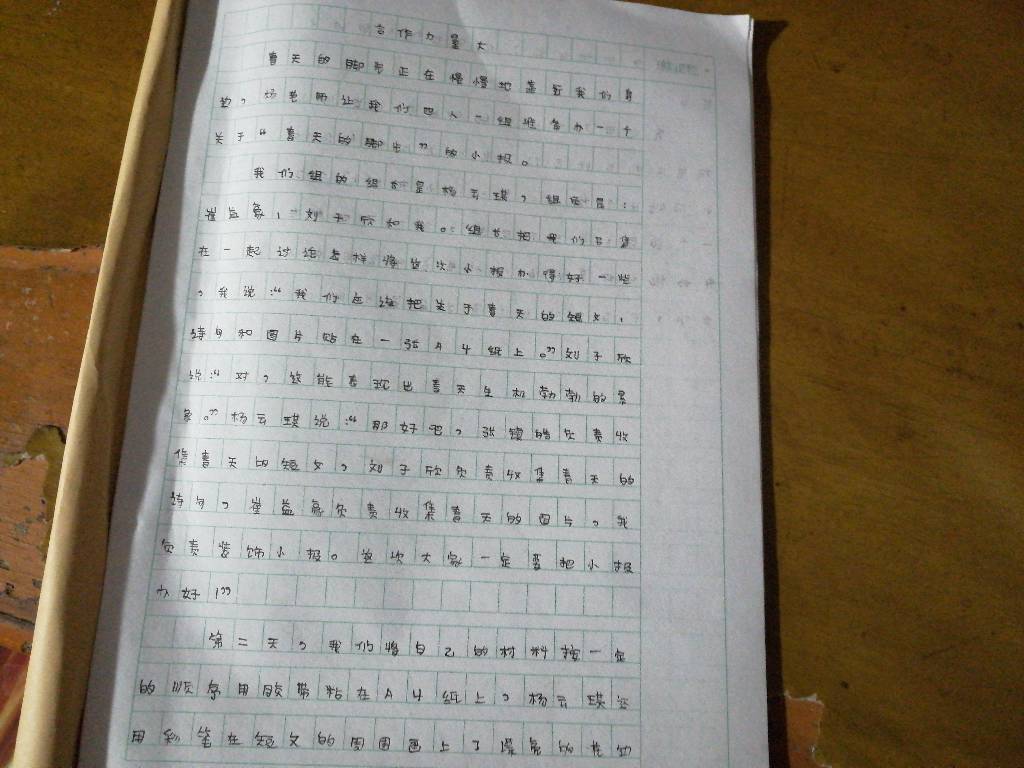 合作力量大
春天的脚步正在慢慢地靠近我们身
边，杨老师让我们四人一组准备办一个
关于“春天的脚步”的小报。
我们组的组长是杨云琪，组员是：
崔益豪、刘子欣和我。组长把我们召集
在一起讨论怎样将这次小报办得好一些
，我说：“我们应该把关于春天的短文、
诗句和图片贴在一张A4纸上。”刘子欣
说：“对，这能表现出春天生机勃勃的景
象。”杨云琪说：“那好吧，张皓负责收
集春天的短文，刘子欣负责收集春天的
诗句，崔益豪负责收集春天的图片，我
负责装饰小报。这次大家一定要把小报
办好！”
第二天，我们将自己的材料按一定
的顺序用胶带粘在A4纸上，杨云琪还
用彩笔在短文的周围画上了漂亮的花边